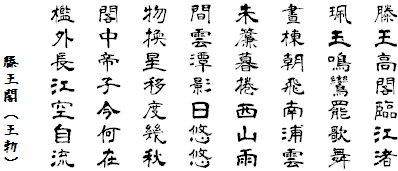 滕王高閣臨江渚
珮玉鳴鸞罷歌舞
畫棟朝飛南浦雲
朱簾暮捲西山雨
間雲潭影日悠悠
物換星移度幾秋
閣中帝子今何在
檻外長江空自流
滕王閣（王勃）